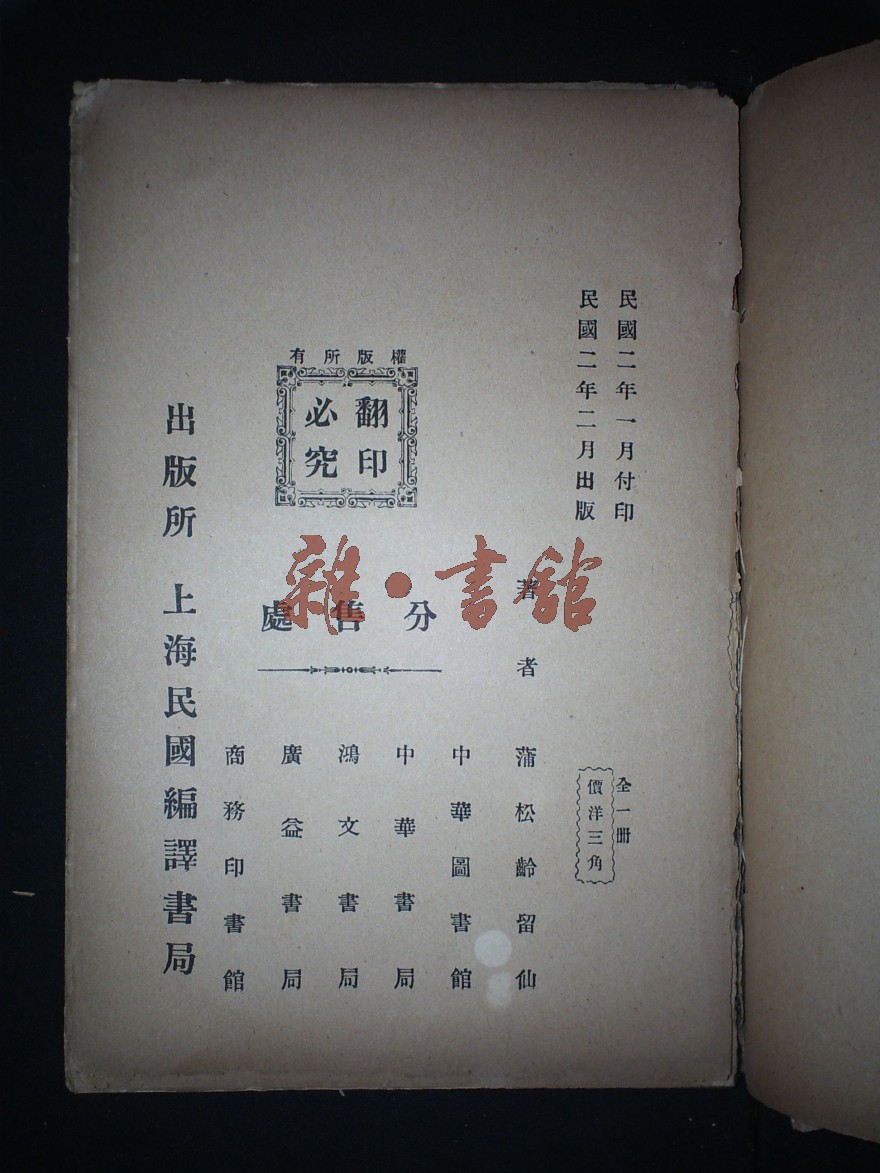 民國二年一月付印
民國二年二月出版
全一册
價洋三角
著者 蒲松齡留仙
權版所有
翻印
必究
分售處
中華圖書館
中華書局
鴻文書局
廣益書局
商務印書館
出版所 上海民國編譯書局
雜·書館